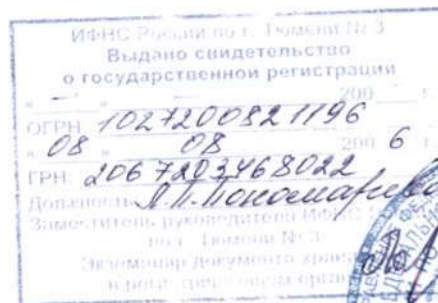 ИФНС России по г. Тюмени № 3
Выдано свидетельство
о государственной регистрации
« — » — 200 г.
ОГРН 1027200821196
« 08 » 08 200 6 г.
ГРН 2067203468022
Должность Л.П. Пономарева
Заместитель руководителя ИФНС
по г. Тюмени № 3
Экземпляр документа хранится
в регистрирующем органе